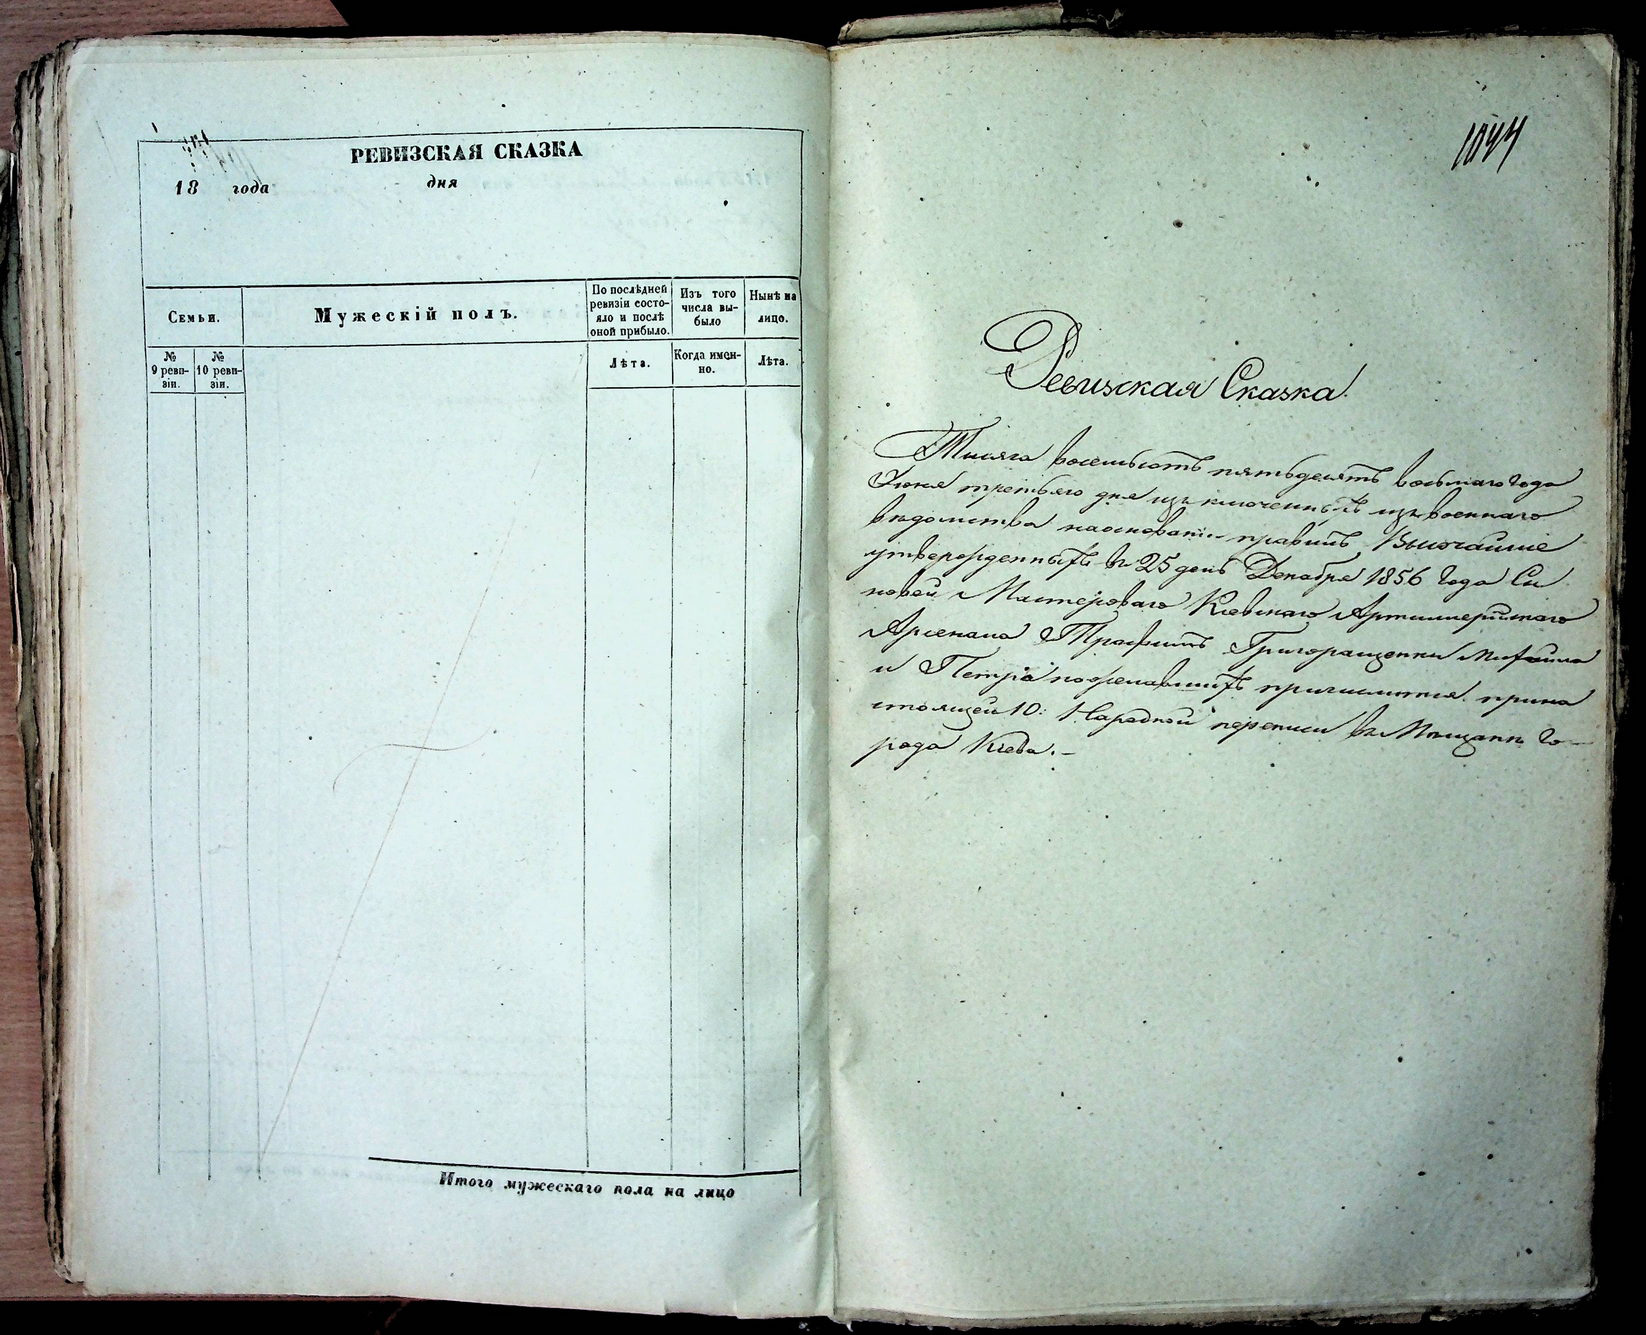 РЕВИЗСКАЯ СКАЗКА
18 года дня
Семьи.
Мужескій полъ.
По послѣдней
ревизіи состо-
яло и послѣ
оной прибыло.
Изъ того
числа вы-
было
Нынѣ на
лицо.
№
9 реви-
зіи.
№
10 реви-
зіи.
Лѣта.
Когда имен-
но.
Лѣта.
Итого мужескаго пола на лицо
1044
Ревизская Сказка.
Тысяча восемьсотъ пятьдесятъ восьмаго года
Іюня третьяго дня изключенныхъ изъ военнаго
вѣдомства на основаніи правилъ Высочайше
утвержденныхъ въ 25 день Декабря 1856 года Сы
новей Мастероваго Кіевскаго Артиллерійскаго
Арсенала Григоращенки Михайла
и Петра пожелавшихъ причислится при на
стоящей 10: Народной переписи въ Мѣщане го-
рода Кіева.-